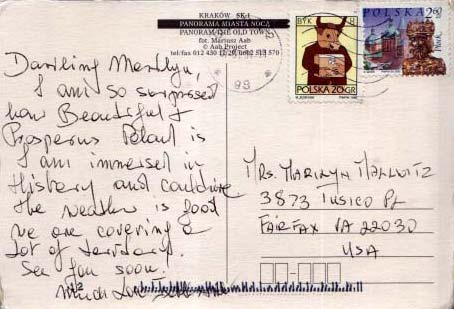 KRAKÓW SK-1
PANORAMA MIASTA NOCĄ
PANORAMA OLD TOWN
fot. Mariusz Aab
© Aab Project
tel/fax 012 430
BYK
POLSKA 20GR
POLSKA 260
98
Darling Marilyn,
I am so surprised
how Beautiful &
Prosperus Poland is
I am immersed in
History and couldure
the weather is good
we are covering a
lot of territory.
See you soon.
Much Love
MRS. MARILYN
3873 TUSICO PL
FAIRFAX VA 22030
USA